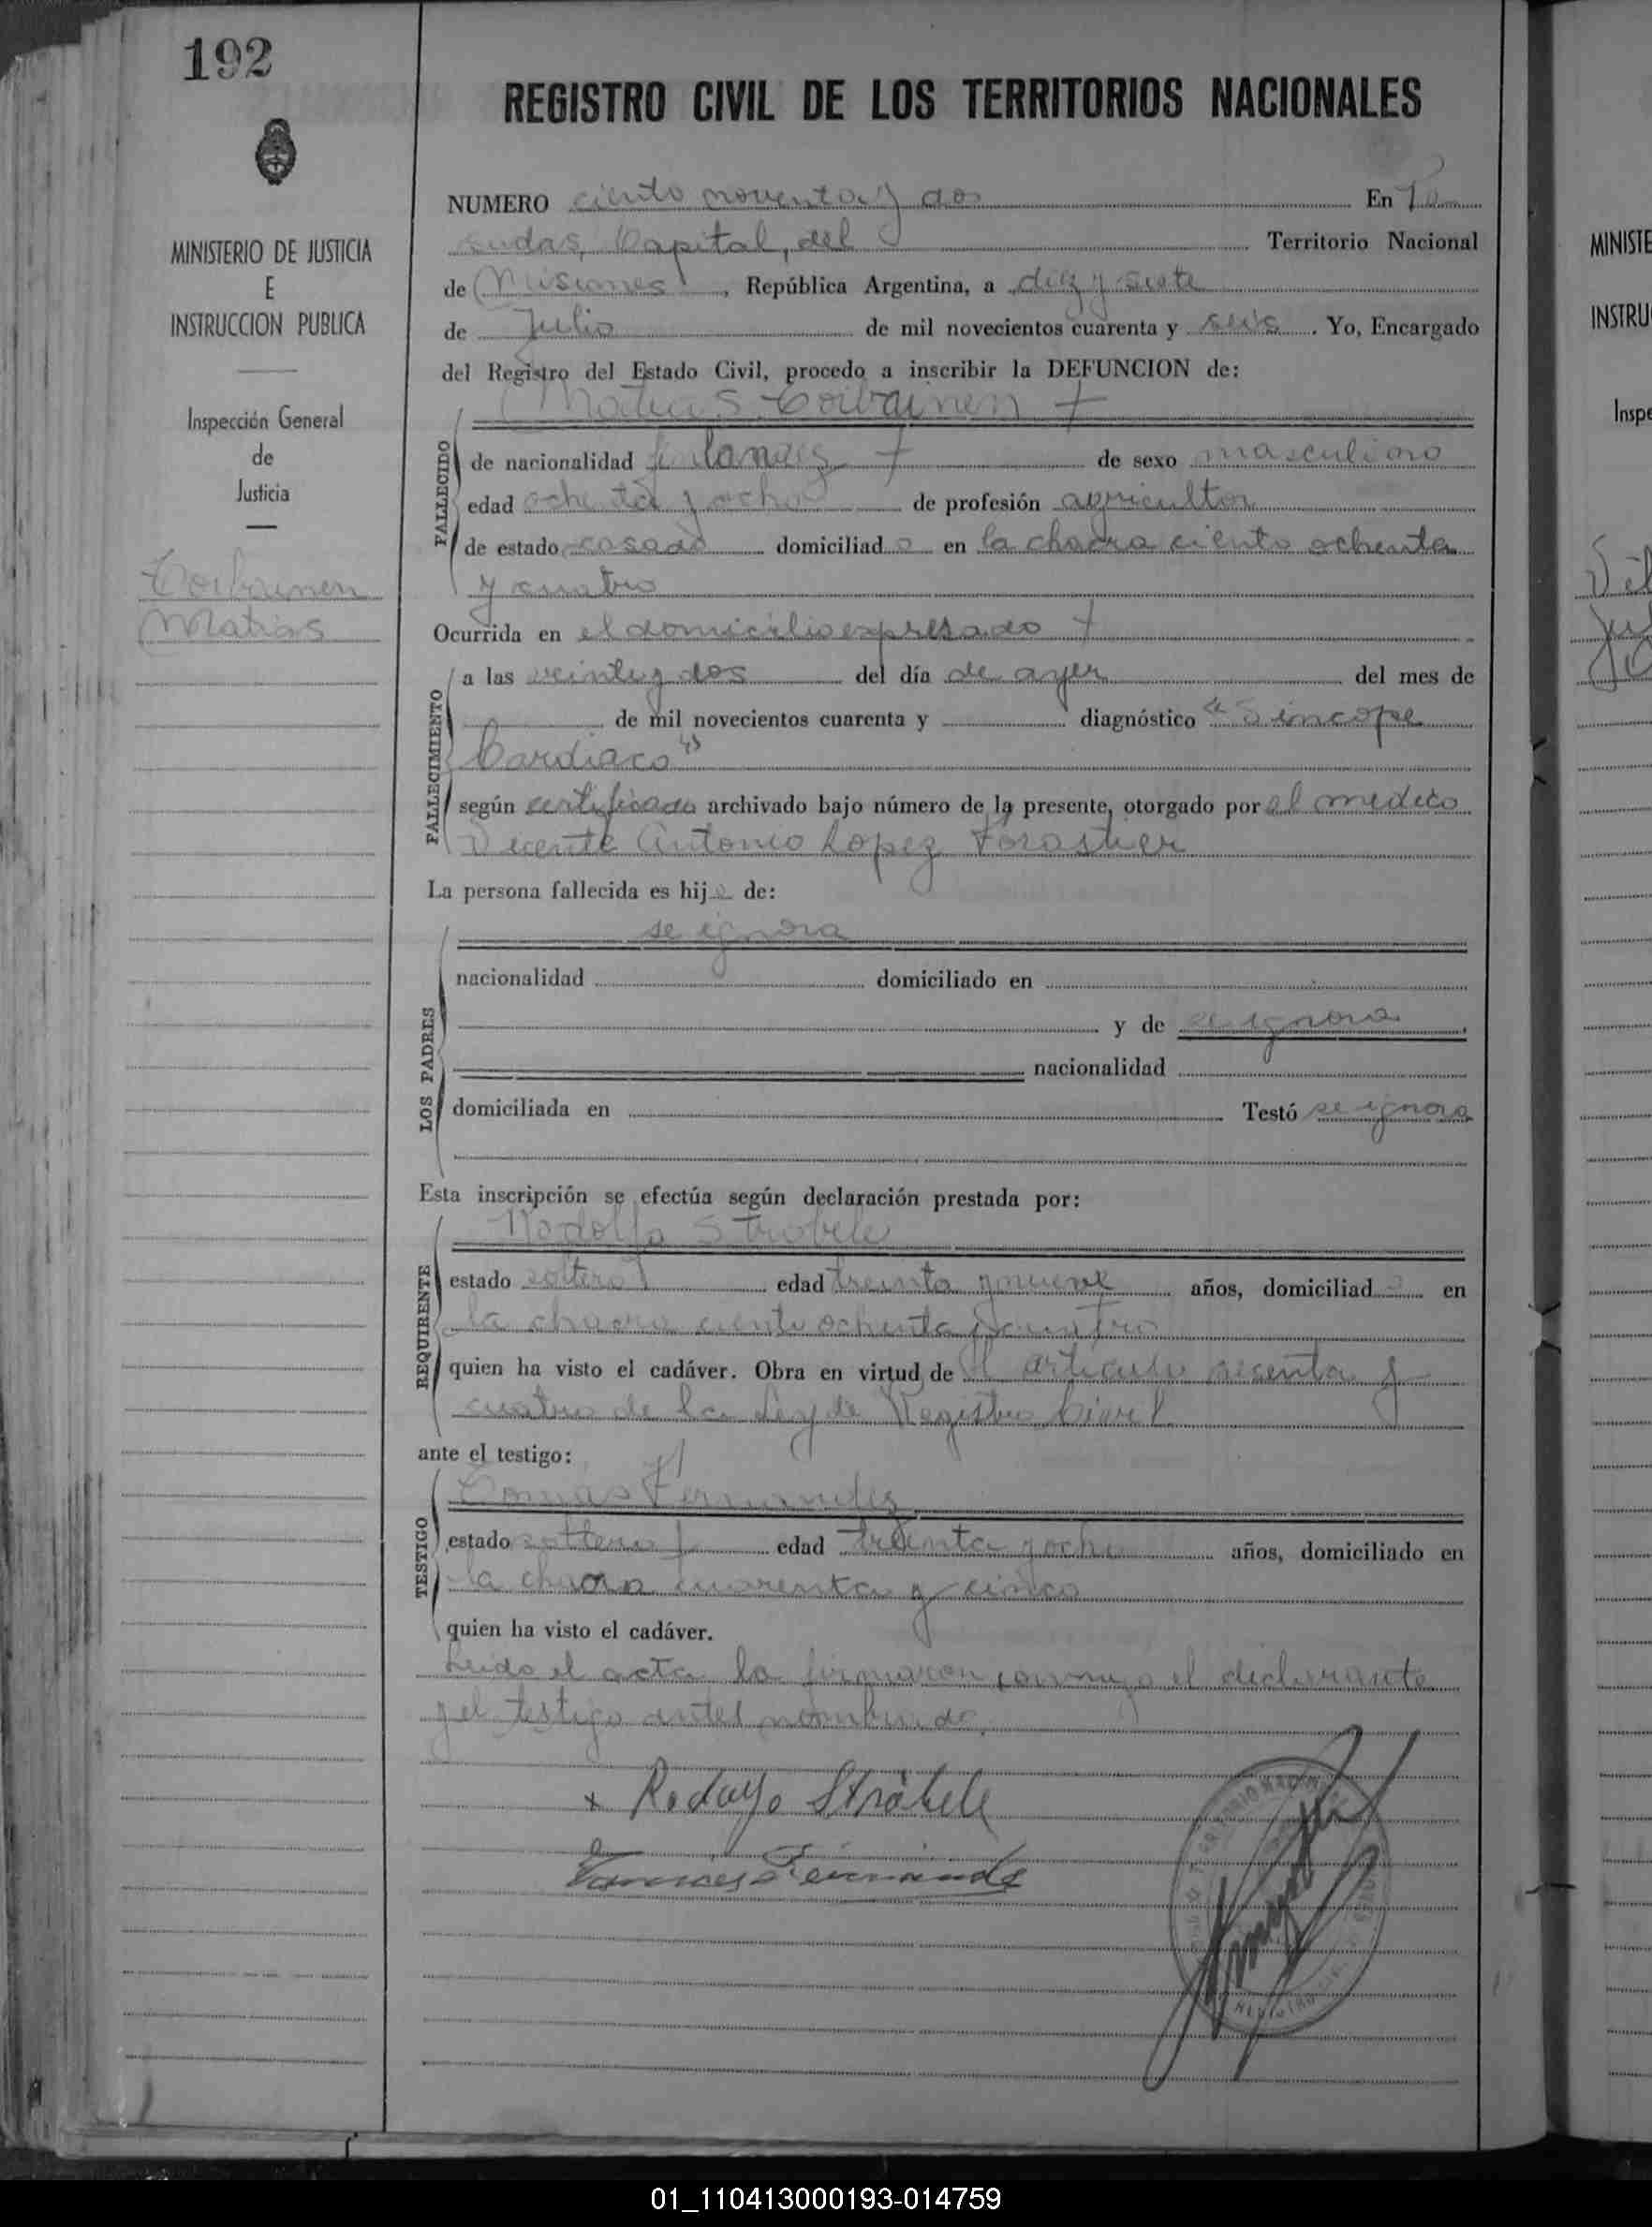 192
REGISTRO CIVIL DE LOS TERRITORIOS NACIONALES
MINISTERIO DE JUSTICIA
E
INSTRUCCION PUBLICA
Inspección General
de
Justicia
Matias
NUMERO ciento noventa y dos En Po
sadas, Capital, del Territorio Nacional
de Misiones, República Argentina, a diez y siete
de Julio de mil novecientos cuarenta y seis. Yo, Encargado
del Registro del Estado Civil, procedo a inscribir la DEFUNCION de:
Matias
FALLECIDO
de nacionalidad finlandez de sexo masculino
edad ochenta y ocho de profesión agricultor
de estado casado domiciliado en la chacra ciento ochenta
y cuatro
Ocurrida en el domicilio expresado
FALLECIMIENTO
a las veinte y dos del día de ayer del mes de
de mil novecientos cuarenta y diagnóstico "Sincope
Cardiaco"
según certificado archivado bajo número de la presente, otorgado por el medico
Vicente Antonio Lopez Forastier
La persona fallecida es hijo de:
LOS PADRES
se ignora
nacionalidad domiciliado en
y de se ignora
nacionalidad
domiciliada en Testó se ignora
Esta inscripción se efectúa según declaración prestada por:
REQUIRENTE
Rodolfo Strobele
estado soltero edad treinta y nueve años, domiciliado en
la chacra ciento ochenta y cuatro
quien ha visto el cadáver. Obra en virtud de el articulo sesenta y
cuatro de la Ley de Registro Civil
ante el testigo:
TESTIGO
Tomas Fernandez
estado soltero edad treinta y ocho años, domiciliado en
la chacra cuarenta y cinco
quien ha visto el cadáver.
Leido el acta la firmaron conmigo el declarante
y el testigo antes nombrado.
x Rodolfo Ströbele
Fernande
MINISTE
INSTRU
Inspe
01_110413000193-014759